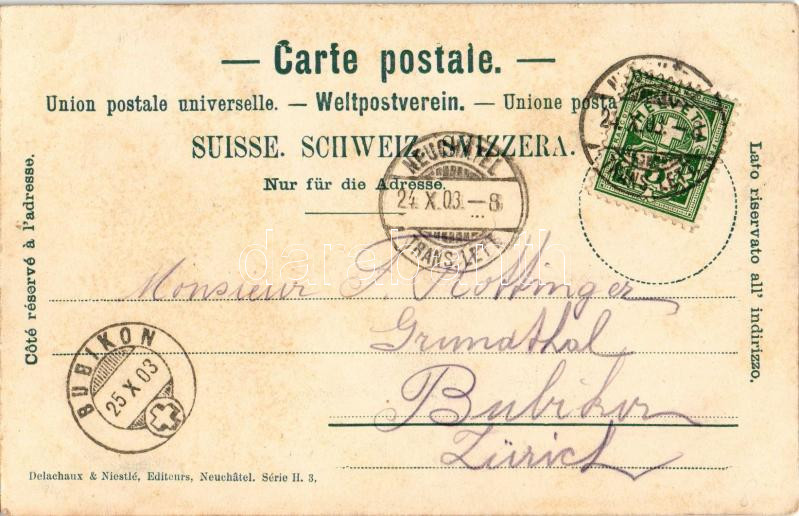 — Carte postale. —
Union postale universelle. — Weltpostverein. — Unione posta
SUISSE. SCHWEIZ. SVIZZERA.
Nur für die Adresse.
Côté réservé à l'adresse.
Lato riservato all' indirizzo.
NEUCHATEL
24.X.03.–8
TRANS. LETT.
HELVETIA
24.X.03.–
TRANS. LETT.
Monsieur F. Hottinger
Grundthal
Bubikon
Zürich
BUBIKON
25 X 03
Delachaux & Niestlé, Editeurs, Neuchâtel. Série H. 3.
darabanth